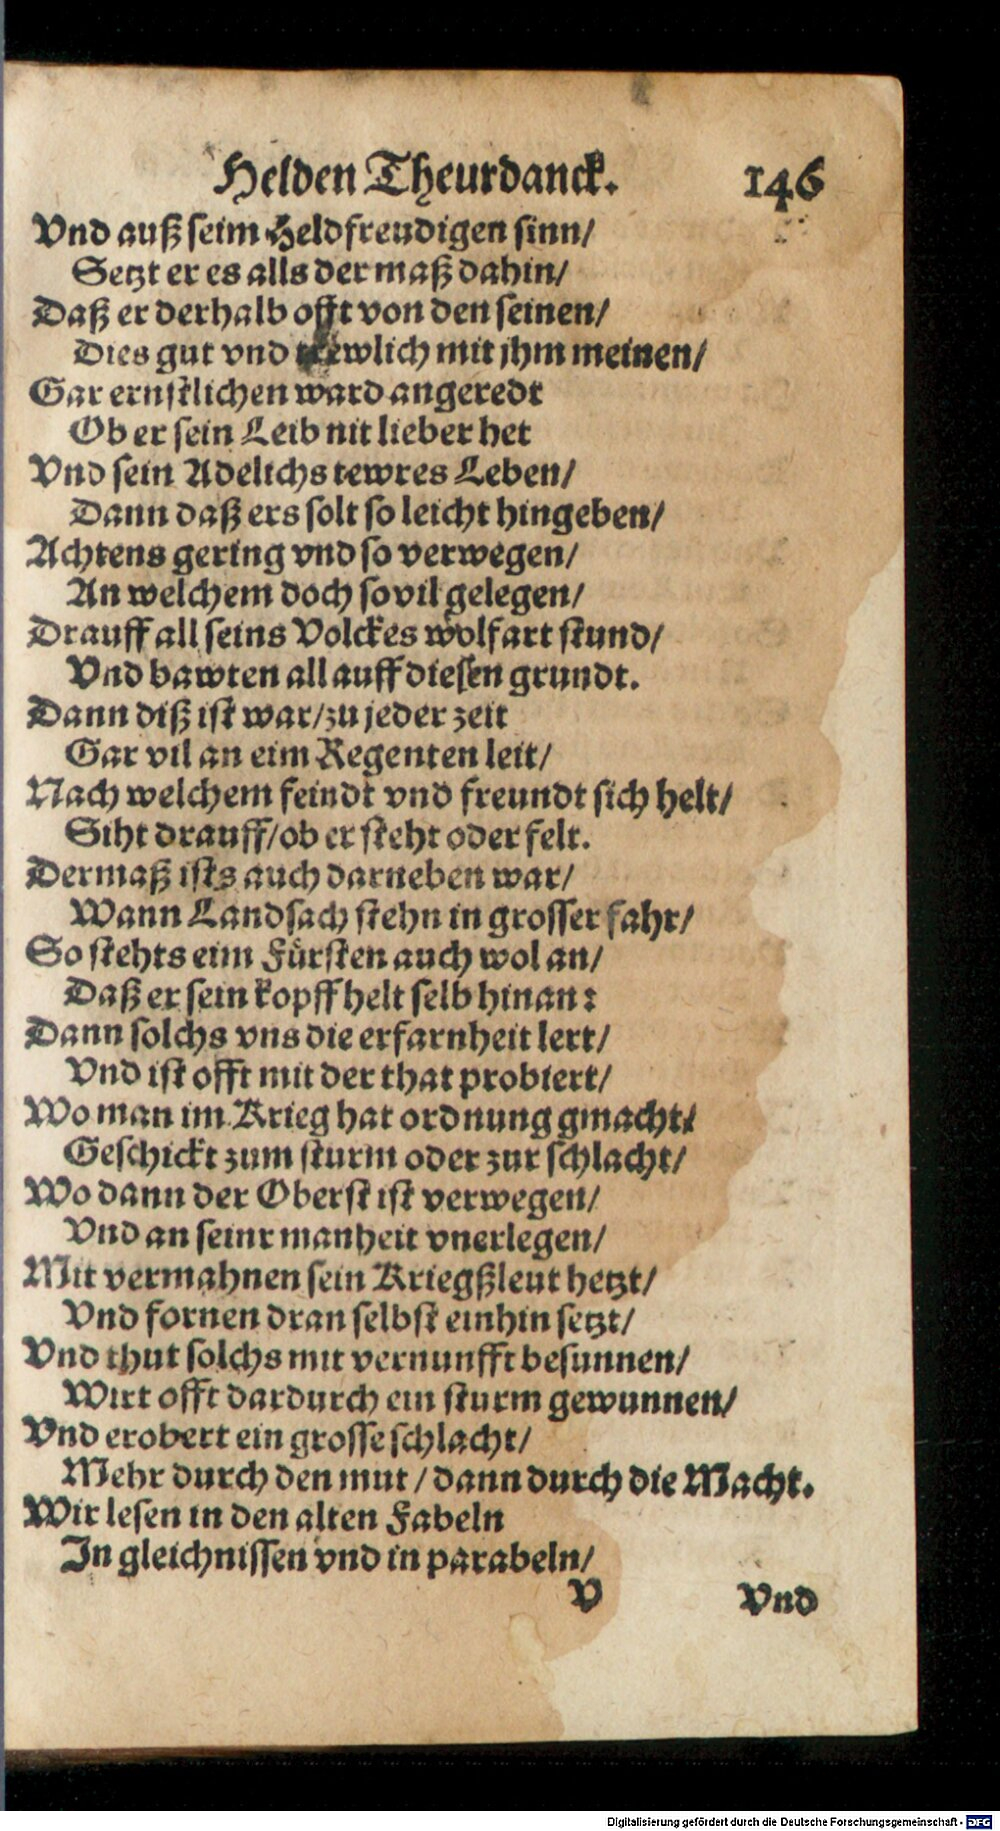 Helden Theurdanck. 146
Vnd auß seim Heldfreudigen sinn/
Setzt er es alls der maß dahin/
Daß er derhalb offt von den seinen/
Dies gut vnd trewlich mit jhm meinen/
Gar ernstlichen ward angeredt
Ob er sein Leib nit lieber het
Vnd sein Adelichs tewres Leben/
Dann daß ers solt so leicht hingeben/
Achtens gering vnd so verwegen/
An welchem doch sovil gelegen/
Drauff all seins Volckes wolfart stund/
Vnd bawten all auff diesen grundt.
Dann diß ist war/zu jeder zeit
Gar vil an eim Regenten leit/
Nach welchem feindt vnd freundt sich helt/
Siht drauff/ob er steht oder felt.
Dermaß ists auch darneben war/
Wann Landsach stehn in grosser fahr/
So stehts eim Fürsten auch wol an/
Daß er sein kopff helt selb hinan:
Dann solchs vns die erfarnheit lert/
Vnd ist offt mit der that probiert/
Wo man im Krieg hat ordnung gmacht/
Geschickt zum sturm oder zur schlacht/
Wo dann der Oberst ist verwegen/
Vnd an seinr manheit vnerlegen/
Mit vermahnen sein Kriegßleut hetzt/
Vnd fornen dran selbst einhin setzt/
Vnd thut solchs mit vernunfft besunnen/
Wirt offt dardurch ein sturm gewunnen/
Vnd erobert ein grosse schlacht/
Mehr durch den mut / dann durch die Macht.
Wir lesen in den alten Fabeln
In gleichnissen vnd in parabeln/
V Vnd
Digitalisierung gefördert durch die Deutsche Forschungsgemeinschaft - DFG